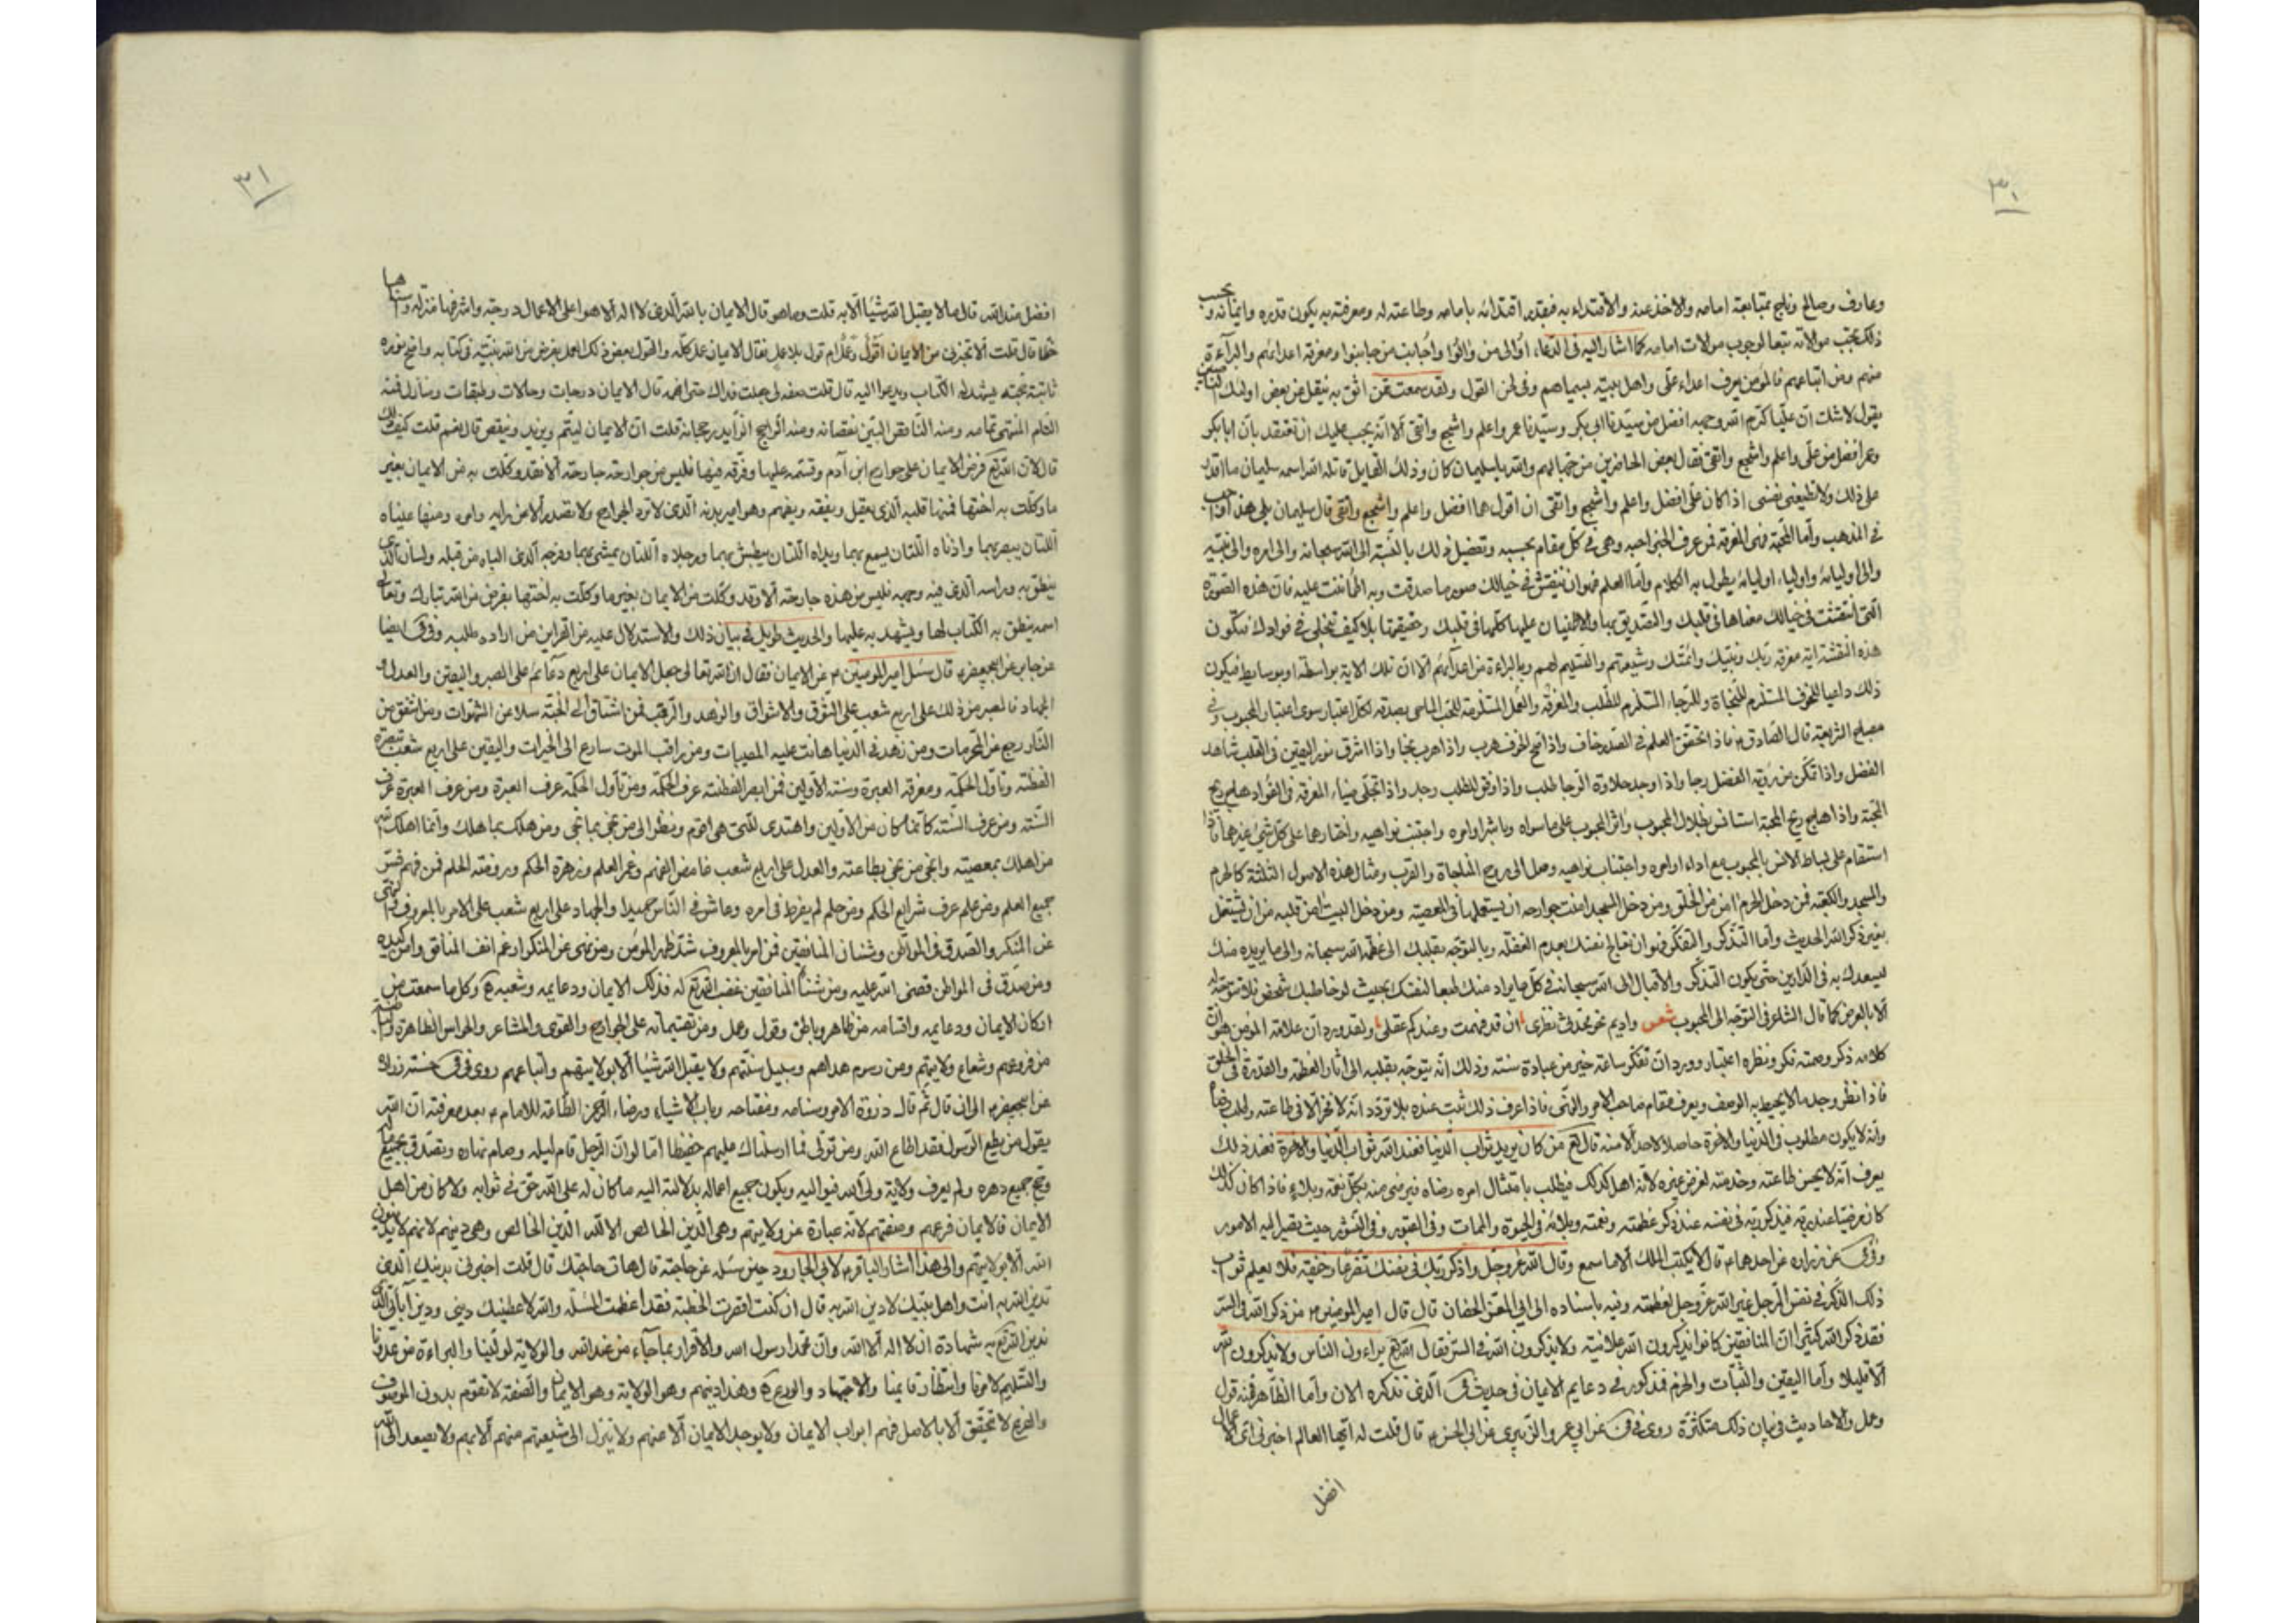 ٣٠
وعارف وصالح بمتابعة امامه والاخذ عنه والاقتداء به فبقدر اقتدائه بامامه وطاعته له ومعرفته به يكون قدره وايمانه و يحسب
ذلك تجب موالاته تبعا لوجوب موالات امامه كما اشار اليه في الدعاء اوالى من والوا واجانب من جانبوا ومعرفة اعدائهم والبراءة
منهم ومن اتباعهم فالمؤمن يعرف اعداء على واهل بيته بسيماهم وفي لحن القول ولقد سمعت ممن اثق به ينقل عن بعض اولئك
يقول لا شك ان عليا كرم الله وجهه افضل من سيدنا ابي بكر وسيدنا عمر واعلم واشجع واتقى الا انه يجب عليك ان تعتقد بان ابا بكر
وعمر افضل من على واعلم واشجع واتقى فقال بعض الحاضرين من جهالهم والله يا سليمان كان وذلك القايل قاتله الله اسمه سليمان ما اقدر
على ذلك ولا تطيعني نفسي اذا كان على افضل واعلم واشجع واتقى ان اقول هما افضل واعلم واشجع واتقى قال سليمان بلى هذا
في المذهب واما المحبة فهى المعرفة فمن عرف الخير احبه وهي في كل مقام بحسبه وتفصيل ذلك بالنسبة الى الله سبحانه والى امره والى نبيه
والى اوليائه واولياء اوليائه يطول به الكلام واما العلم فهو ان تنتقش في خيالك صور ما صدقت وبه اطمأننت عليه فان هذه الصورة
التي انتقشت في خيالك معناها في قلبك والتصديق بها والاطمينان عليها كلها في قلبك وحقيقتها بلا كيف تتجلى في فوادك فتكون
هذه النقشة اية معرفة ربك ونبيك وائمتك وشيعتهم والتسليم لهم وبالبراءة من اعدائهم الا ان تلك الاية بواسطة او بوسايط فيكون
ذلك داعيا للخوف المستلزم للنجاة وللرجاء المستلزم للطلب والمعرفة والعمل المستلزمة للحب الماحي بصدقه لكل اعتبار سوى اعتبار المحبوب وفي
مصباح الشريعة قال الصادق فاذا تحقق العلم في الصدر خاف واذا صح الخوف هرب واذا هرب نجا واذا اشرق نور اليقين في القلب شاهد
الفضل واذا تمكن من رؤية الفضل رجا واذا وجد حلاوة الرجا طلب واذا وفق للطلب وجد واذا تجلى ضياء المعرفة في الفواد هاج ريح
المحبة واذا هاج ريح المحبة استانس بظلال المحبوب واثر المحبوب على ما سواه وباشر اوامره واجتنب نواهيه واختارهما على كل شيئ غيرهما فاذا
استقام على بساط الانس بالمحبوب مع اداء اوامره واجتناب نواهيه وصل الى روح المناجاة والقرب ومثال هذه الاصول الثلثة كالحرم
والمسجد والكعبة فمن دخل الحرم امن من الخلق ومن دخل المسجد امنت جوارحه ان يستعملها في المعصية ومن دخل البيت امن قلبه من ان يشتغل
بغير ذكر الله الحديث واما التذكر والتفكر فهو ان تعالج نفسك بعدم الغفلة وبالتوجه بقلبك الى عظمة الله سبحانه والى ما يريده منك
ليسعدك به في الدارين حتى يكون التذكر والاقبال الى الله سبحانه في كل ما يراد منك طبعا لنفسك بحيث لو خاطبك شخص
الا بالعرض كما قال الشاعر في التوجه الى المحبوب شعر واديم نحو محدثي نظرى ان قد فهمت وعندكم عقلى ولقد ورد ان علامة المؤمن هو ان
كلامه ذكر وصمته فكر ونظره اعتبار وورد ان تفكر ساعة خير من عبادة سنة وذلك انه يتوجه بقلبه الى اثار العظمة والقدرة في الخلق
فاذا نظر وجد ما لا يحيط به الوصف ويعرف مقام صاحب الامر والنهى فاذا عرف ذلك ثبت عنده بلا تردد انه لا فخر الا في طاعته وطلب رضاه
وانه لا يكون مطلوب في الدنيا والاخرة حاصلا لاحد الا منه قال تع من كان يريد ثواب الدنيا فعند الله ثواب الدنيا والاخرة فعند ذلك
يعرف انه لا يحسن طاعته وخدمته لغرض غيره لانه اهل كذلك فيطلب بامتثال امره رضاه فيرضى منه بكل نعمة وبلاء فاذا كان كذلك
كان مرضيا عند ربه فيذكر ربه في نفسه عند ذكر عظمته ونعمته وبلائه في الحيوة والممات وفي القبور وفي النشور حيث تصير اليه الامور
وفي عن زرارة عن احدهما قال لا يكتب الملك الا ما سمع وقال الله عز وجل واذكر ربك في نفسك تضرعا وخفية فلا يعلم ثواب
ذلك الذكر في نفس الرجل غير الله عز وجل لعظمته وفيه باسناده الى ابي المغرا الخصاف قال قال امير المومنين من ذكر الله في السر
فقد ذكر الله كثيرا ان المنافقين كانوا يذكرون الله علانية ولا يذكرون الله في السر فقال الله تع يراءون الناس ولا يذكرون الله
الا قليلا واما اليقين والثبات والحزم فمذكور في دعايم الايمان في حديث الذي نذكره الان واما الظاهر فمنه قول
وعمل والاحاديث في بيان ذلك متكثرة روى في عن ابي عمرو الزبيري عن ابي الحسن قال قلت له ايها العالم اخبرني اى الاعمال
افضل
٣١
افضل عند الله قال ما لا يقبل الله شيئا الا به قلت وما هو قال الايمان بالله الذي لا اله الا هو اعلى الاعمال درجة واشرفها منزلة واسناها
حظا قال قلت الا تخبرني عن الايمان اقول وعمل ام قول بلا عمل فقال الايمان عمل كله والقول بعض ذلك العمل بفرض من الله بينه في كتابه واضح نوره
ثابتة حجته يشهد له الكتاب ويدعوا اليه قال قلت صفه لى جعلت فداك حتى افهمه قال الايمان درجات وحالات وطبقات ومنازل فمنه
التام المنتهى تمامه ومنه الناقص البين نقصانه ومنه الراجح الزايد رجحانه قلت ان الايمان ليتم ويزيد وينقص قال نعم قلت كيف ذلك
قال لان الله تع فرض الايمان على جوارح ابن آدم وقسمه عليها وفرقه فيها فليس من جوارحه جارحة الا وقد وكلت به من الايمان بغير
ما وكلت به اختها فمنها قلبه الذي يعقل ويفقه ويفهم وهو امير بدنه الذي لا ترد الجوارح ولا تصدر الا عن رايه وامره ومنها عيناه
اللتان يبصر بهما واذناه اللتان يسمع بهما ويداه اللتان يبطش بهما ورجلاه اللتان يمشي بهما وفرجه الذي الباه من قبله ولسانه الذي
ينطق به وراسه الذي فيه وجهه فليس من هذه جارحة الا وقد وكلت من الايمان بغير ما وكلت به اختها بفرض من الله تبارك وتعالى
اسمه ينطق به الكتاب لها ويشهد به عليها والحديث طويل في بيان ذلك والاستدلال عليه من القران من اراده طلبه وفي ايضا
عن جابر عن ابي جعفر قال سئل امير المومنين عن الايمان فقال ان الله تعالى جعل الايمان على اربع دعائم على الصبر واليقين والعدل و
الجهاد فالصبر من ذلك على اربع شعب على الشوق والاشفاق والزهد والترقب فمن اشتاق الى الجنة سلا عن الشهوات ومن اشفق من
النار رجع عن المحرمات ومن زهد في الدنيا هانت عليه المصيبات ومن راقب الموت سارع الى الخيرات واليقين على اربع شعب تبصرة
الفطنة وتاول الحكمة ومعرفة العبرة وسنة الاولين فمن ابصر الفطنة عرف الحكمة ومن تأول الحكمة عرف العبرة ومن عرف العبرة عرف
السنة ومن عرف السنة كانما كان من الاولين واهتدى للتى هى اقوم ونظر الى من نجى بما نجى ومن هلك بما هلك وانما اهلك الله
من اهلك بمعصيته وانجى من نجى بطاعته والعدل على اربع شعب غامض الفهم وغمر العلم وزهرة الحكم وروضة الحلم فمن فهم فسر
جميع العلم ومن علم عرف شرايع الحكم ومن حلم لم يفرط في امره وعاش في الناس حميدا والجهاد على اربع شعب على الامر بالمعروف والنهى
عن المنكر والصدق في المواطن وشنان المنافقين فمن امر بالمعروف شد ظهر المؤمن ومن نهى عن المنكر ارغم انف المنافق وامن كيده
ومن صدق في المواطن قضى الله عليه ومن شنأ المنافقين غضب لله تع له فذلك الايمان ودعايمه وشعبه وكل ما سمعت من
اركان الايمان ودعايمه واقسامه من ظاهر وباطن وقول وعمل ومن تقسيماته على الجوارح والقوى والمشاعر والحواس الظاهرة والباطنة
من فروعهم وشعاع ولايتهم ومن رسوم هداهم وسبيل سنتهم ولا يقبل الله شيئا الا بولايتهم واتباعهم روى في حسنة زرارة
عن ابي جعفر الى ان قال ثم قال ذروة الامر وسنامه ومفتاحه وباب الاشياء ورضاء الرحمن الطاعة للامام بعد معرفته ان الله
يقول من يطع الرسول فقد اطاع الله ومن تولى فما ارسلناك عليهم حفيظا اما لو ان الرجل قام ليله وصام نهاره وتصدق بجميع ماله
وحج جميع دهره ولم يعرف ولاية ولى الله فيواليه ويكون جميع اعماله بدلالته اليه ما كان له على الله حق في ثوابه ولا كان من اهل
الايمان فالايمان فرعهم وصفتهم لانه عبارة عن ولايتهم وهى الدين الخالص الا لله الدين الخالص وهى دينهم لانهم لا يدينون
الله الا بولايتهم والى هذا اشار الباقر لابي الجارود حين سئله عن حاجته قال هات حاجتك قال قلت اخبرني بدينك الذي
تدين الله به انت واهل بيتك لادين الله به قال ان كنت اقصرت الخطبة فقد اعظمت المسئلة والله لاعطينك ديني ودين آبائي الذي
ندين الله تع به شهادة ان لا اله الا الله وان محمدا رسول الله والاقرار بما جاء من عند الله والولاية لولينا والبراءة من عدونا
والتسليم لامرنا وانتظار قايمنا والاجتهاد والورع وهذا دينهم وهو الولاية وهو الايمان والصفة لا تقوم بدون الموصوف
والفرع لا تحقق الا بالاصل فهم ابواب الايمان ولا يوجد الايمان الا عنهم ولا ينزل الى شيعتهم منهم الا بهم ولا يصعد الى الله